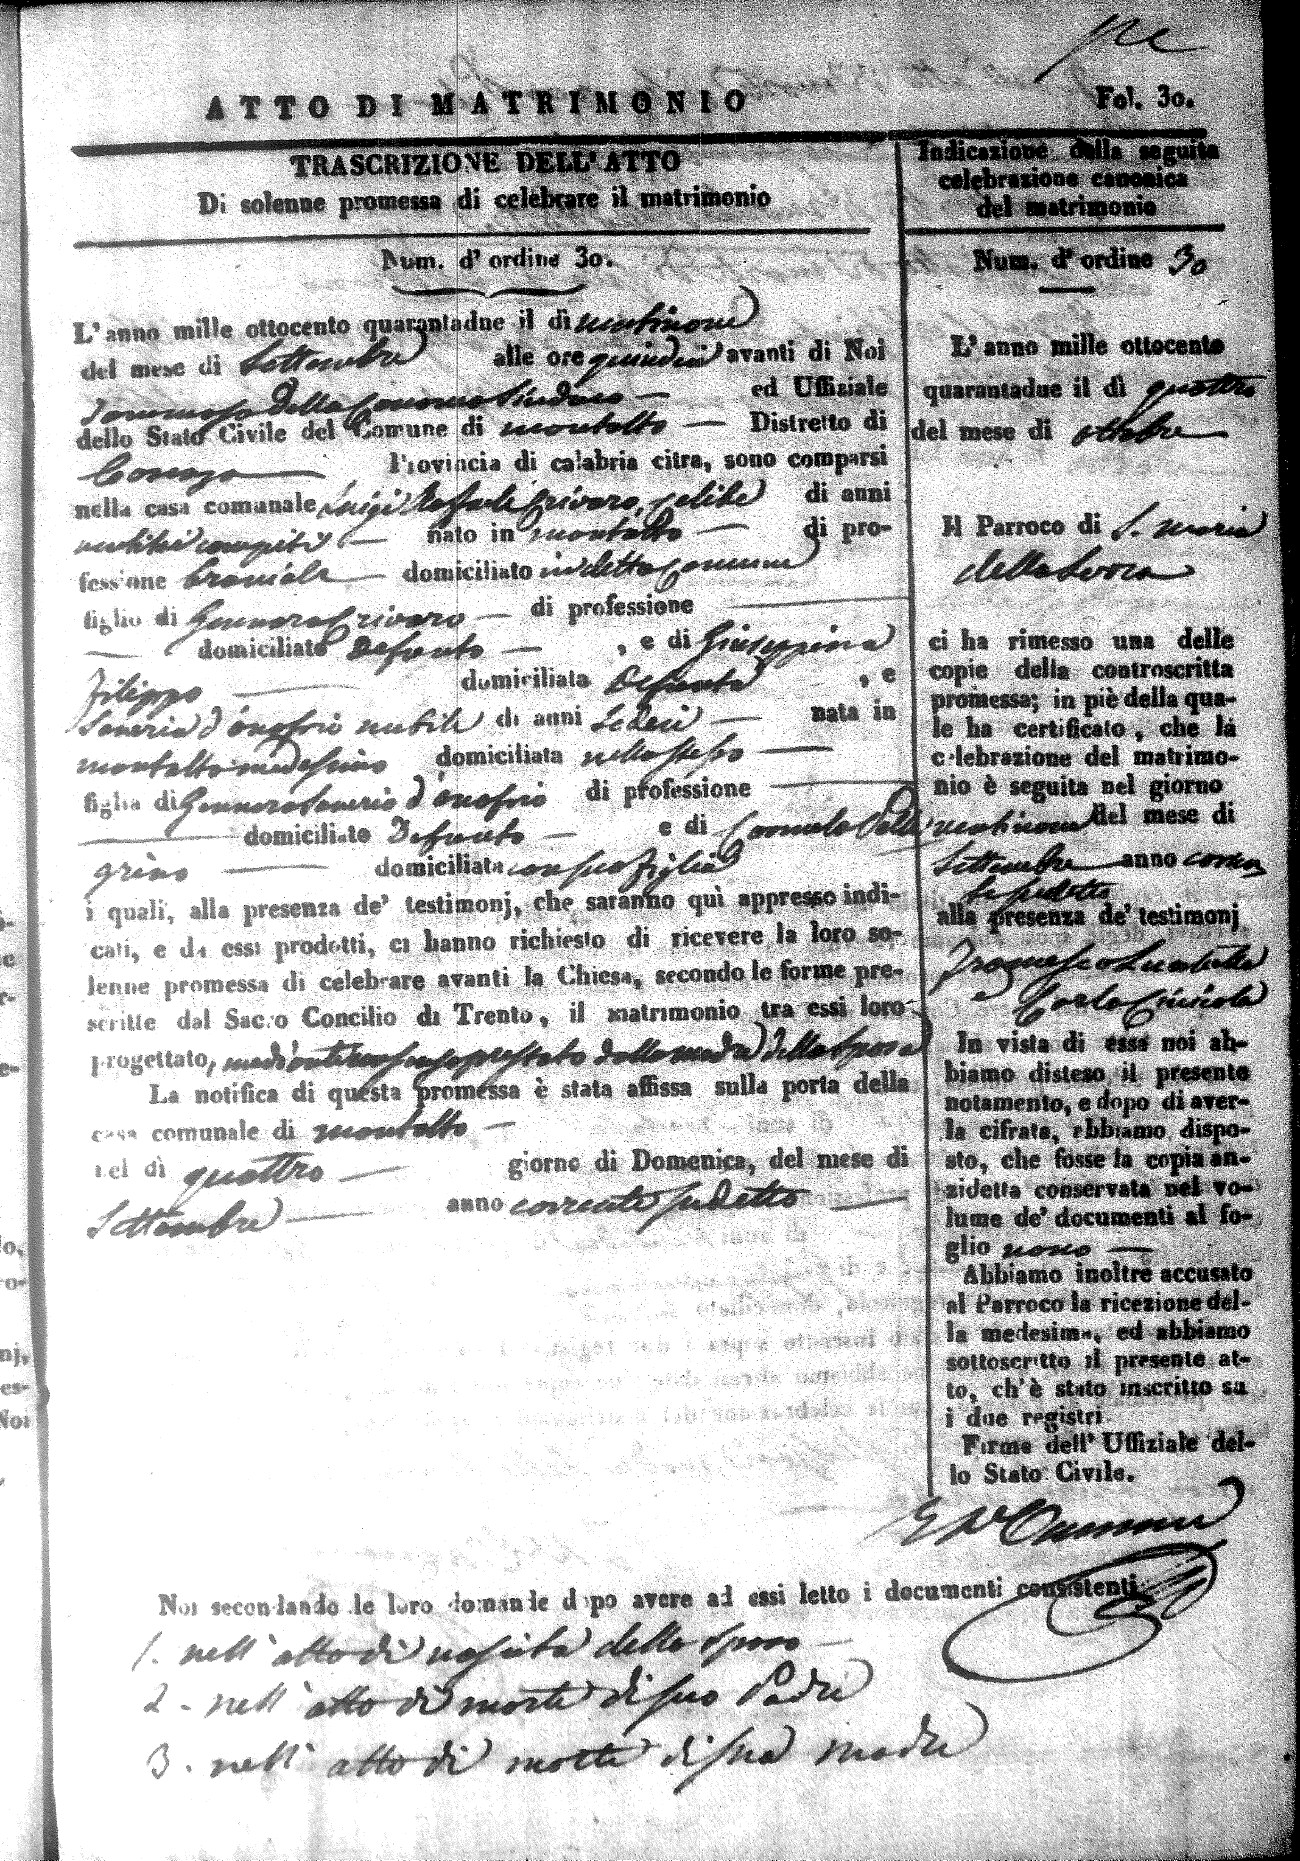 ATTO DI MATRIMONIO
Fol. 30.
TRASCRIZIONE DELL' ATTO
Di solenne promessa di celebrare il matrimonio
Num. d' ordine 30.
L' anno mille ottocento quarantadue il dì ventinove
del mese di Settembre alle ore quindici avanti di Noi
Tommaso della Sindaco ed Uffiziale
dello Stato Civile del Comune di montalto Distretto di
Cosenza Provincia di calabria citra, sono comparsi
nella casa comunale Luigi Rafaele Crivaro, celibe di anni
compiti nato in montalto di pro-
fessione bracciale domiciliato in detto Comune
figlio di Gennaro Crivaro di professione
domiciliato Defunto , e di Giuseppina
Filippo domiciliata Defunta , e
Saveria d'onofrio nubile di anni sedeci nata in
montalto medesimo domiciliata nello stesso
figlia di Gennaro Saverio d'onofrio di professione
domiciliato Defunto e di Carmela Pelle
grino domiciliata con sua figlia
i quali, alla presenza de' testimonj, che saranno quì appresso indi-
cati, e da essi prodotti, ci hanno richiesto di ricevere la loro so-
lenne promessa di celebrare avanti la Chiesa, secondo le forme pre-
scritte dal Sacro Concilio di Trento, il matrimonio tra essi loro
progettato, mediante consenso prestato dalla madre della sposa
La notifica di questa promessa è stata affissa sulla porta della
casa comunale di montalto
nel dì quattro giorno di Domenica, del mese di
Settembre anno corrente sudetto
Indicazione della seguita
celebrazione canonica
del matrimonio
Num. d' ordine 30
L' anno mille ottocento
quarantadue il dì quattro
del mese di ottobre
Il Parroco di S. Maria
della
ci ha rimesso una delle
copie della controscritta
promessa; in piè della qua-
le ha certificato, che la
celebrazione del matrimo-
nio è seguita nel giorno
ventinove del mese di
Settembre anno corren
te sudetto
alla presenza de' testimonj
Francesco
e Carlo
In vista di essa noi ab-
biamo disteso il presente
notamento, e dopo di aver-
la cifrata, abbiamo dispo-
sto, che fosse la copia an-
zidetta conservata nel vo-
lume de' documenti al fo-
glio nono
Abbiamo inoltre accusato
al Parroco la ricezione del-
la medesima, ed abbiamo
sottoscritto il presente at-
to, ch' è stato inscritto su
i due registri.
Firma dell' Uffiziale del-
lo Stato Civile.
Noi secondando le loro domande dopo avere ad essi letto i documenti consistenti
1. nell' atto di nascita dello sposo
2 - nell' atto di morte di suo Padre
3 . nell' atto di morte di sua madre